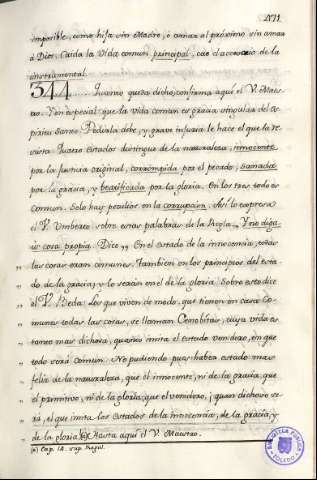 imposible, como hija sin Madre, ò amar al próximo sin amar
à Dios. Caìda la Vida comun principal, cae el accesorio de la
instrumental.
344 Quanto queda dicho, confirma aquì el V. Maes-
tro. Y en especial, que la vida comun es gracia singular del Es-
piritu Santo. Pedirla debe, y grave injuria le hace el que la re-
sista. Quatro estados distingue de la naturaleza, innocente
por la justicia original, corrompida por el pecado, sanada
por la gracia, y beatificada por la gloria. En los tres todo es
comun. Solo hay peculios en la corrupcion. Asi lo expresa
el V. Umberto sobre estas palabras de la Regla. Y no diga-
is cosa propia. Dice, En el estado de la innocencia, todas
las cosas eran comunes. Tambien en los principios del esta-
do de la gracia; y lo seràn en el de la gloria. Sobre esto dice
el V. Beda: Los que viven de modo, que tienen en casa Co-
munes todas las cosas, se llaman Cenobitas, cuya vida es
tanto mas dichosa, quanto imita el estado venidero, en que
todo serà comun. No pudiendo pues haber estado mas
feliz de la naturaleza, que el innocente, ni de la gracia, que
el primitivo, ni de la gloria, que el venidero, ¡quan dichoso se-
rà, el que imita los estados de la innocencia, de la gracia, y
de la gloria! (a) Hasta aquì el V. Maestro.
(a) Cap. 18. sup. Regul.
BIBLIOTECA PUBLICA
TOLEDO